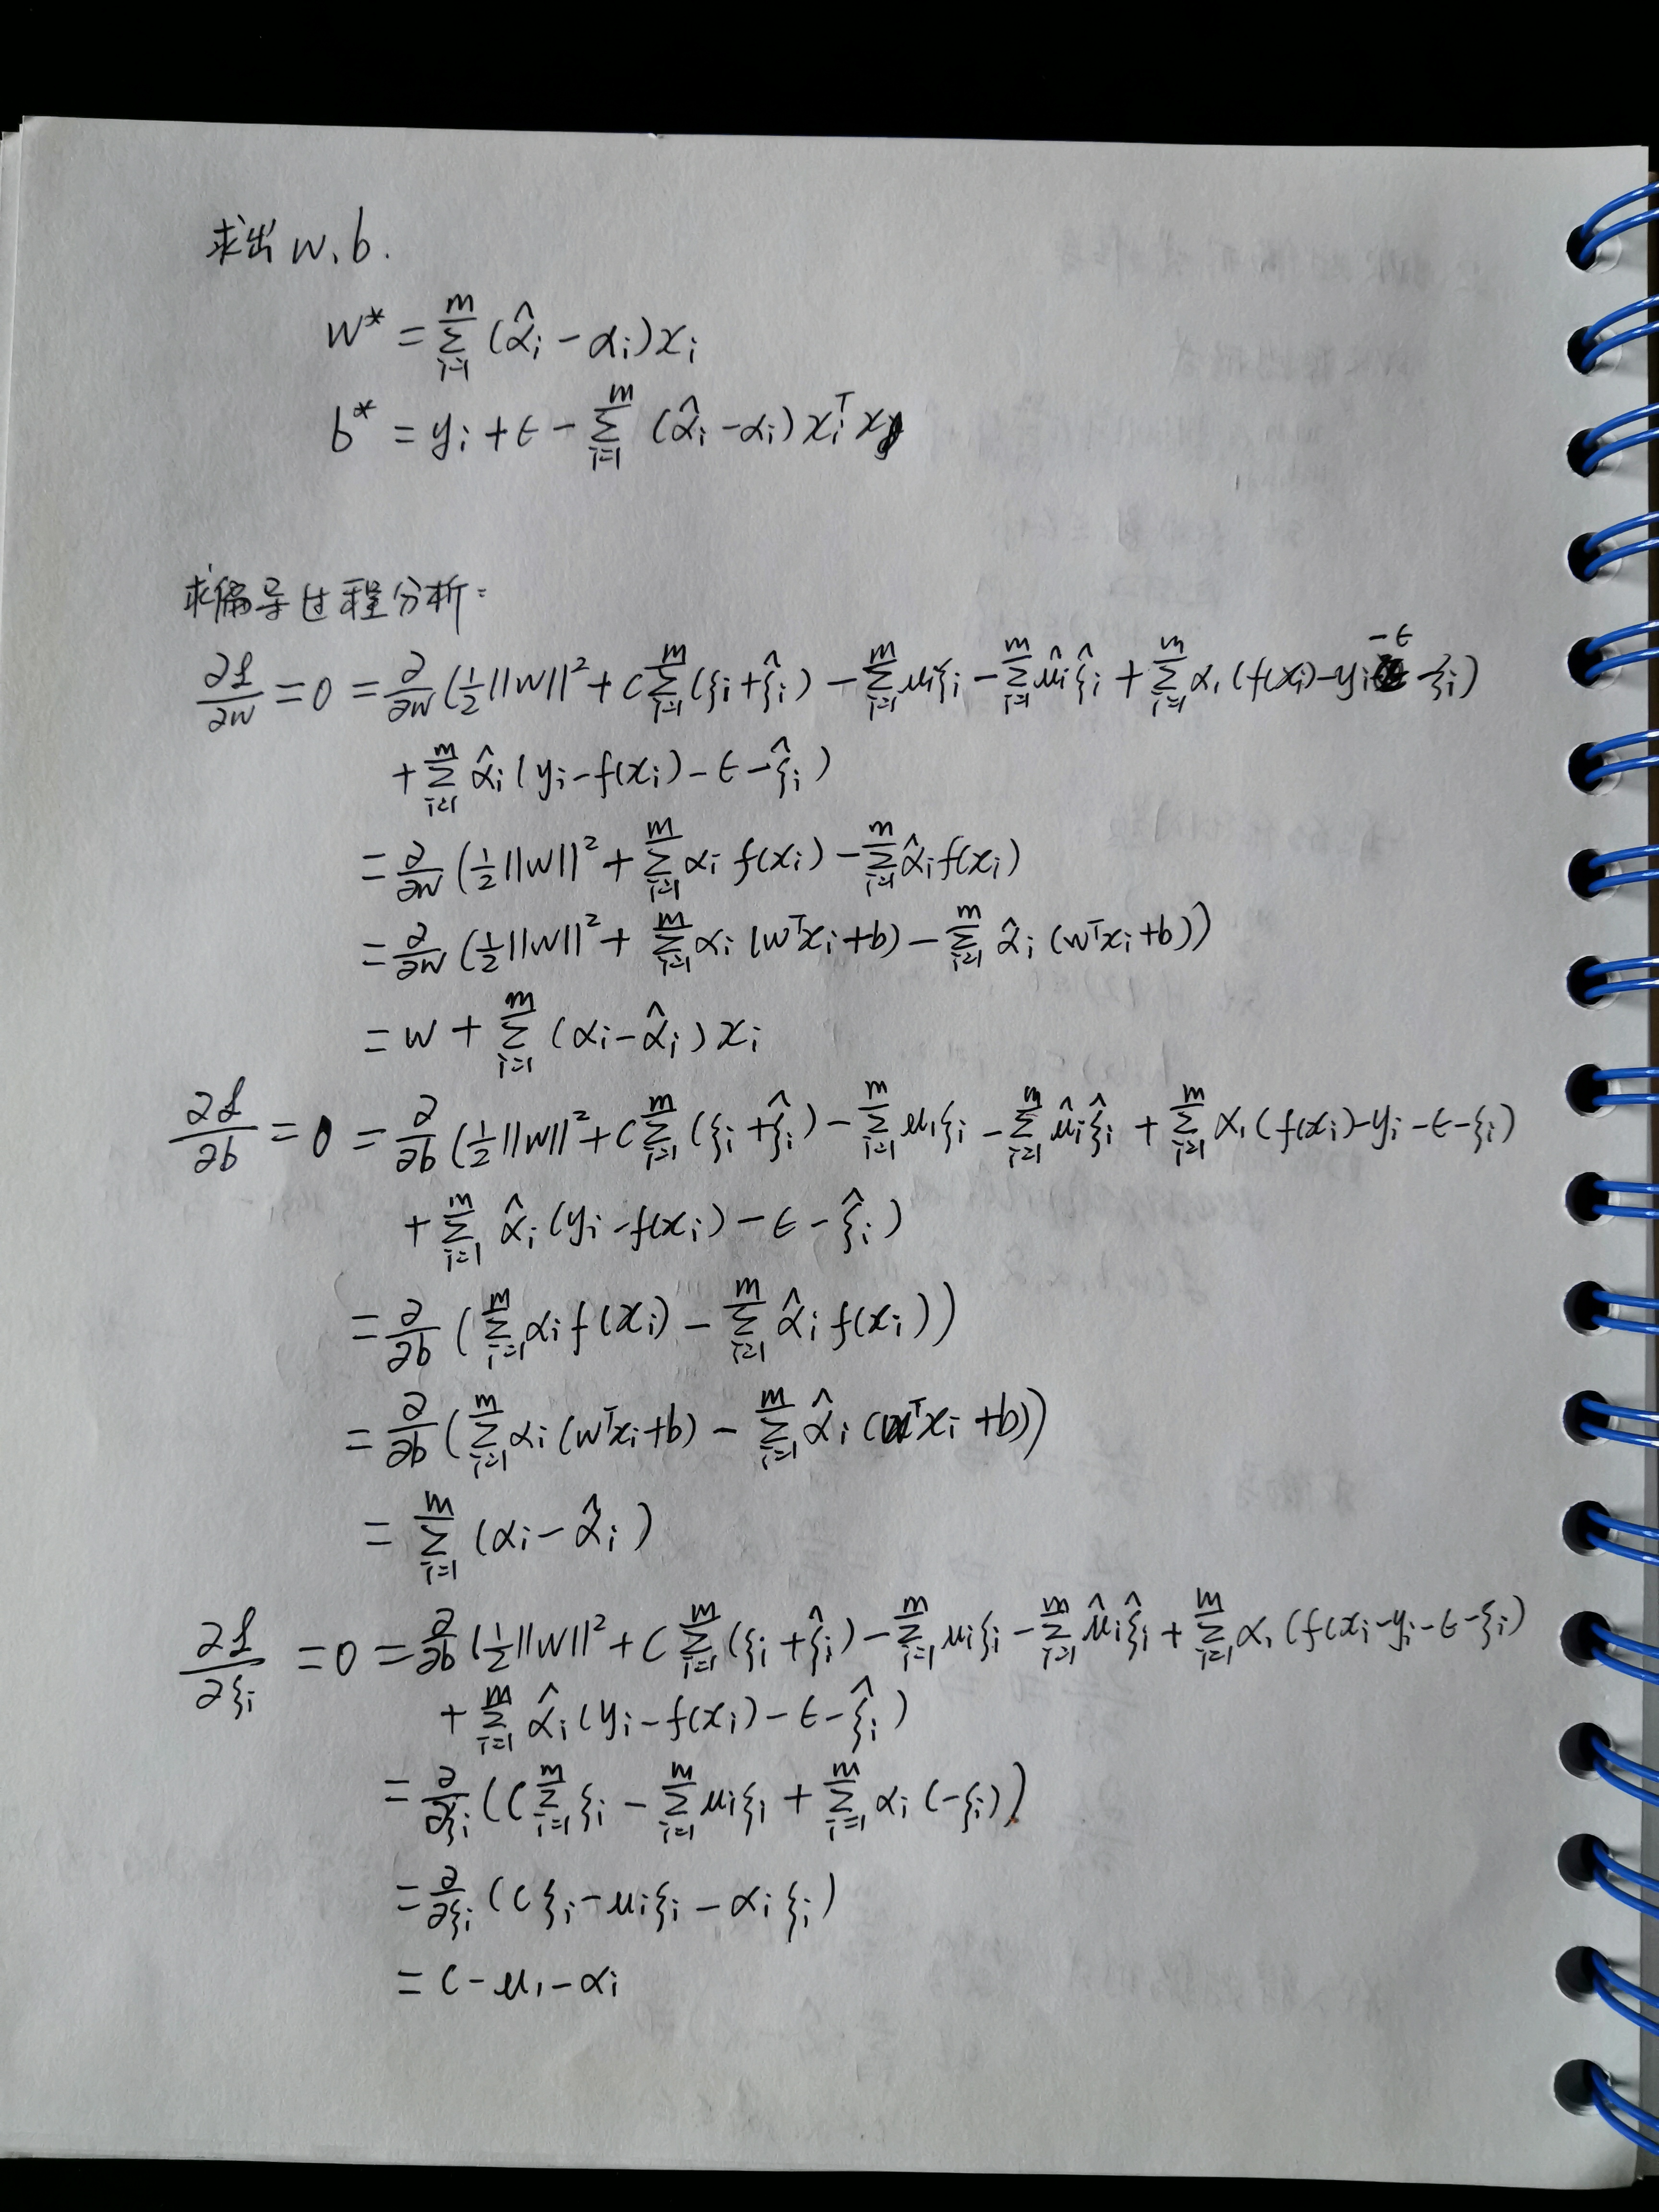 求出 w、b.
w* = ∑_{i=1}^{m} (α̂_i - α_i) x_i
b* = y_i + ϵ - ∑_{i=1}^{m} (α̂_i - α_i) x_i^T x_j
求偏导过程分析:
∂L/∂w = 0 = ∂/∂w (1/2 ||w||² + C ∑_{i=1}^{m} (ξ_i + ξ̂_i) - ∑_{i=1}^{m} μ_i ξ_i - ∑_{i=1}^{m} μ̂_i ξ̂_i + ∑_{i=1}^{m} α_i (f(x_i) - y_i - ϵ - ξ_i)
+ ∑_{i=1}^{m} α̂_i (y_i - f(x_i) - ϵ - ξ̂_i)
= ∂/∂w (1/2 ||w||² + ∑_{i=1}^{m} α_i f(x_i) - ∑_{i=1}^{m} α̂_i f(x_i)
= ∂/∂w (1/2 ||w||² + ∑_{i=1}^{m} α_i (w^T x_i + b) - ∑_{i=1}^{m} α̂_i (w^T x_i + b))
= w + ∑_{i=1}^{m} (α_i - α̂_i) x_i
∂L/∂b = 0 = ∂/∂b (1/2 ||w||² + C ∑_{i=1}^{m} (ξ_i + ξ̂_i) - ∑_{i=1}^{m} μ_i ξ_i - ∑_{i=1}^{m} μ̂_i ξ̂_i + ∑_{i=1}^{m} α_i (f(x_i) - y_i - ϵ - ξ_i)
+ ∑_{i=1}^{m} α̂_i (y_i - f(x_i) - ϵ - ξ̂_i)
= ∂/∂b (∑_{i=1}^{m} α_i f(x_i) - ∑_{i=1}^{m} α̂_i f(x_i))
= ∂/∂b (∑_{i=1}^{m} α_i (w^T x_i + b) - ∑_{i=1}^{m} α̂_i (w^T x_i + b))
= ∑_{i=1}^{m} (α_i - α̂_i)
∂L/∂ξ_i = 0 = ∂/∂b (1/2 ||w||² + C ∑_{i=1}^{m} (ξ_i + ξ̂_i) - ∑_{i=1}^{m} μ_i ξ_i - ∑_{i=1}^{m} μ̂_i ξ̂_i + ∑_{i=1}^{m} α_i (f(x_i - y_i - ϵ - ξ_i)
+ ∑_{i=1}^{m} α̂_i (y_i - f(x_i) - ϵ - ξ̂_i)
= ∂/∂ξ_i (C ∑_{i=1}^{m} ξ_i - ∑_{i=1}^{m} μ_i ξ_i + ∑_{i=1}^{m} α_i (-ξ_i))
= ∂/∂ξ_i (C ξ_i - μ_i ξ_i - α_i ξ_i)
= C - μ_i - α_i